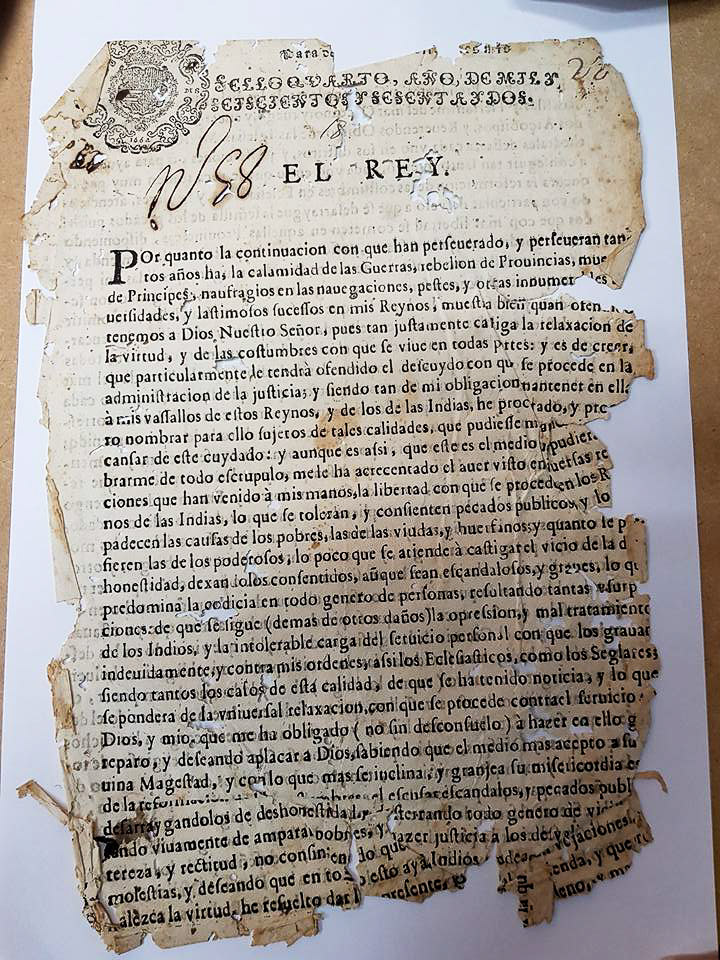 Para
SELLO QVARTO, AÑO, DE MIL Y
SEISCIENTOS Y SESENTA Y DOS.
1662
EL REY.
POr quanto la continuacion con que han perseuerado, y perseueran tan
tos años ha, la calamidad de las Guerras, rebelion de Prouincias, mue
de Principes, naufragios en las nauegaciones, pestes, y otras innumerables
uersidades, y lastimosos sucessos en mis Reynos, muestra bien quan ofen
tenemos a Dios Nuestro Señor, pues tan justamente castiga la relaxacion de
la virtud, y de las costumbres con que se viue en todas prtes: y es de creer,
que particularmente le tendrà ofendido el descuydo con qu se procede en la
administracion de la justicia; y siendo tan de mi obligacion mantener en ella
à mis vassallos de estos Reynos, y de los de las Indias, he procrado, y pro
ro nombrar para ello sujetos de tales calidades, que pudiesse
cansar de este cuydado: y aunque es assi, que este es el medio pudier
brarme de todo escrupulo, me le ha acrecentado el auer visto en uersas re
ciones que han venido à mis manos, la libertad con que se procede en los R
nos de las Indias, lo que se toleran, y consienten pecados publicos, y lo
padecen las causas de los pobres, las de las viudas, y huerfanos; y quanto le p
fieren las de los poderosos, lo poco que se atiende à castigar el vicio de la d
honestidad, dexandolos consentidos, aũque sean escandalosos, y graues, lo qu
predomina la codicia en todo genero de personas, resultando tantas vsurp
ciones: de que se sigue (demas de otros daños) la opression, y mal tratamiento
de los Indios, y la intolerable carga del seruicio personal con que los grauan
indeuidamente, y contra mis ordenes, assi los Eclesiasticos, como los Seglares;
siendo tantos los casos de esta calidad, de que se ha tenido noticia, y lo que
se pondera de la vniuersal relaxacion, con que se procede contra el seruicio
Dios, y mio, que me ha obligado (no sin desconsuelo) à hazer en ello g
reparo, y deseando aplacar à Dios, sabiendo que el medio mas acepto a su
uina Magestad, y con lo que mas se inclina, y granjea su misericordia es
de la reformacion escusar escandalos, y pecados publ
desarraygandolos de deshonestida sterrando todo genero de vi
rando viuamente de amparar pobres, y hazer justicia à los desva
tereza, y rectitud, no consin en do que Indios vejaciones,
molestias, y deseando que en to esto aya enda, y que
alezca la virtud, he resuelto dar presente,